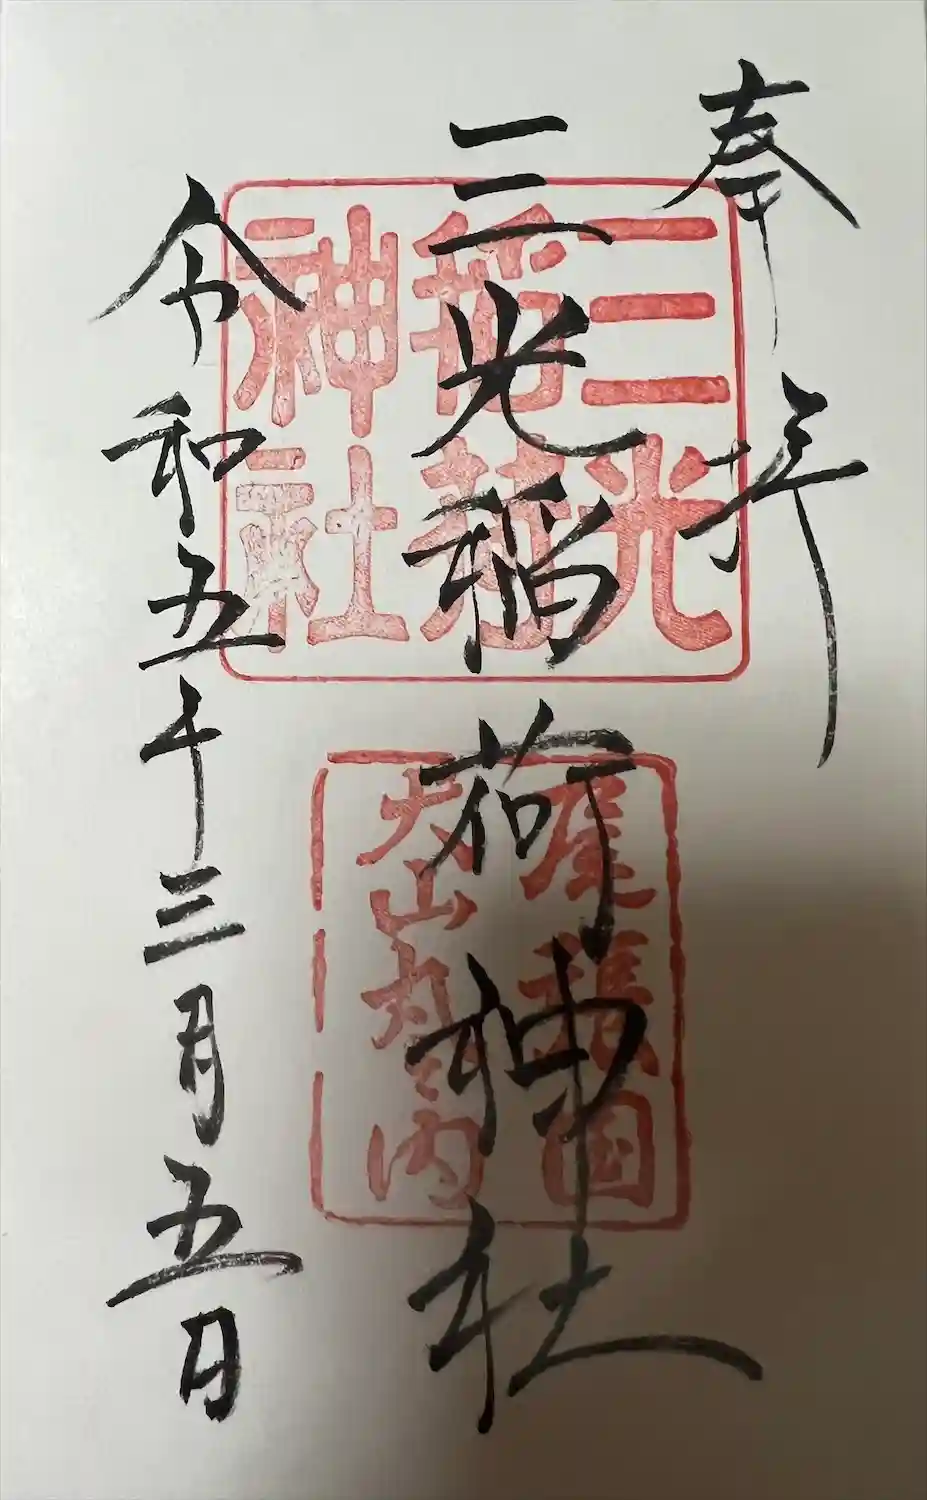 奉拝
三光稲荷神社
令和五年三月五日
三光
稲荷
神社
尾張国
犬山丸之内